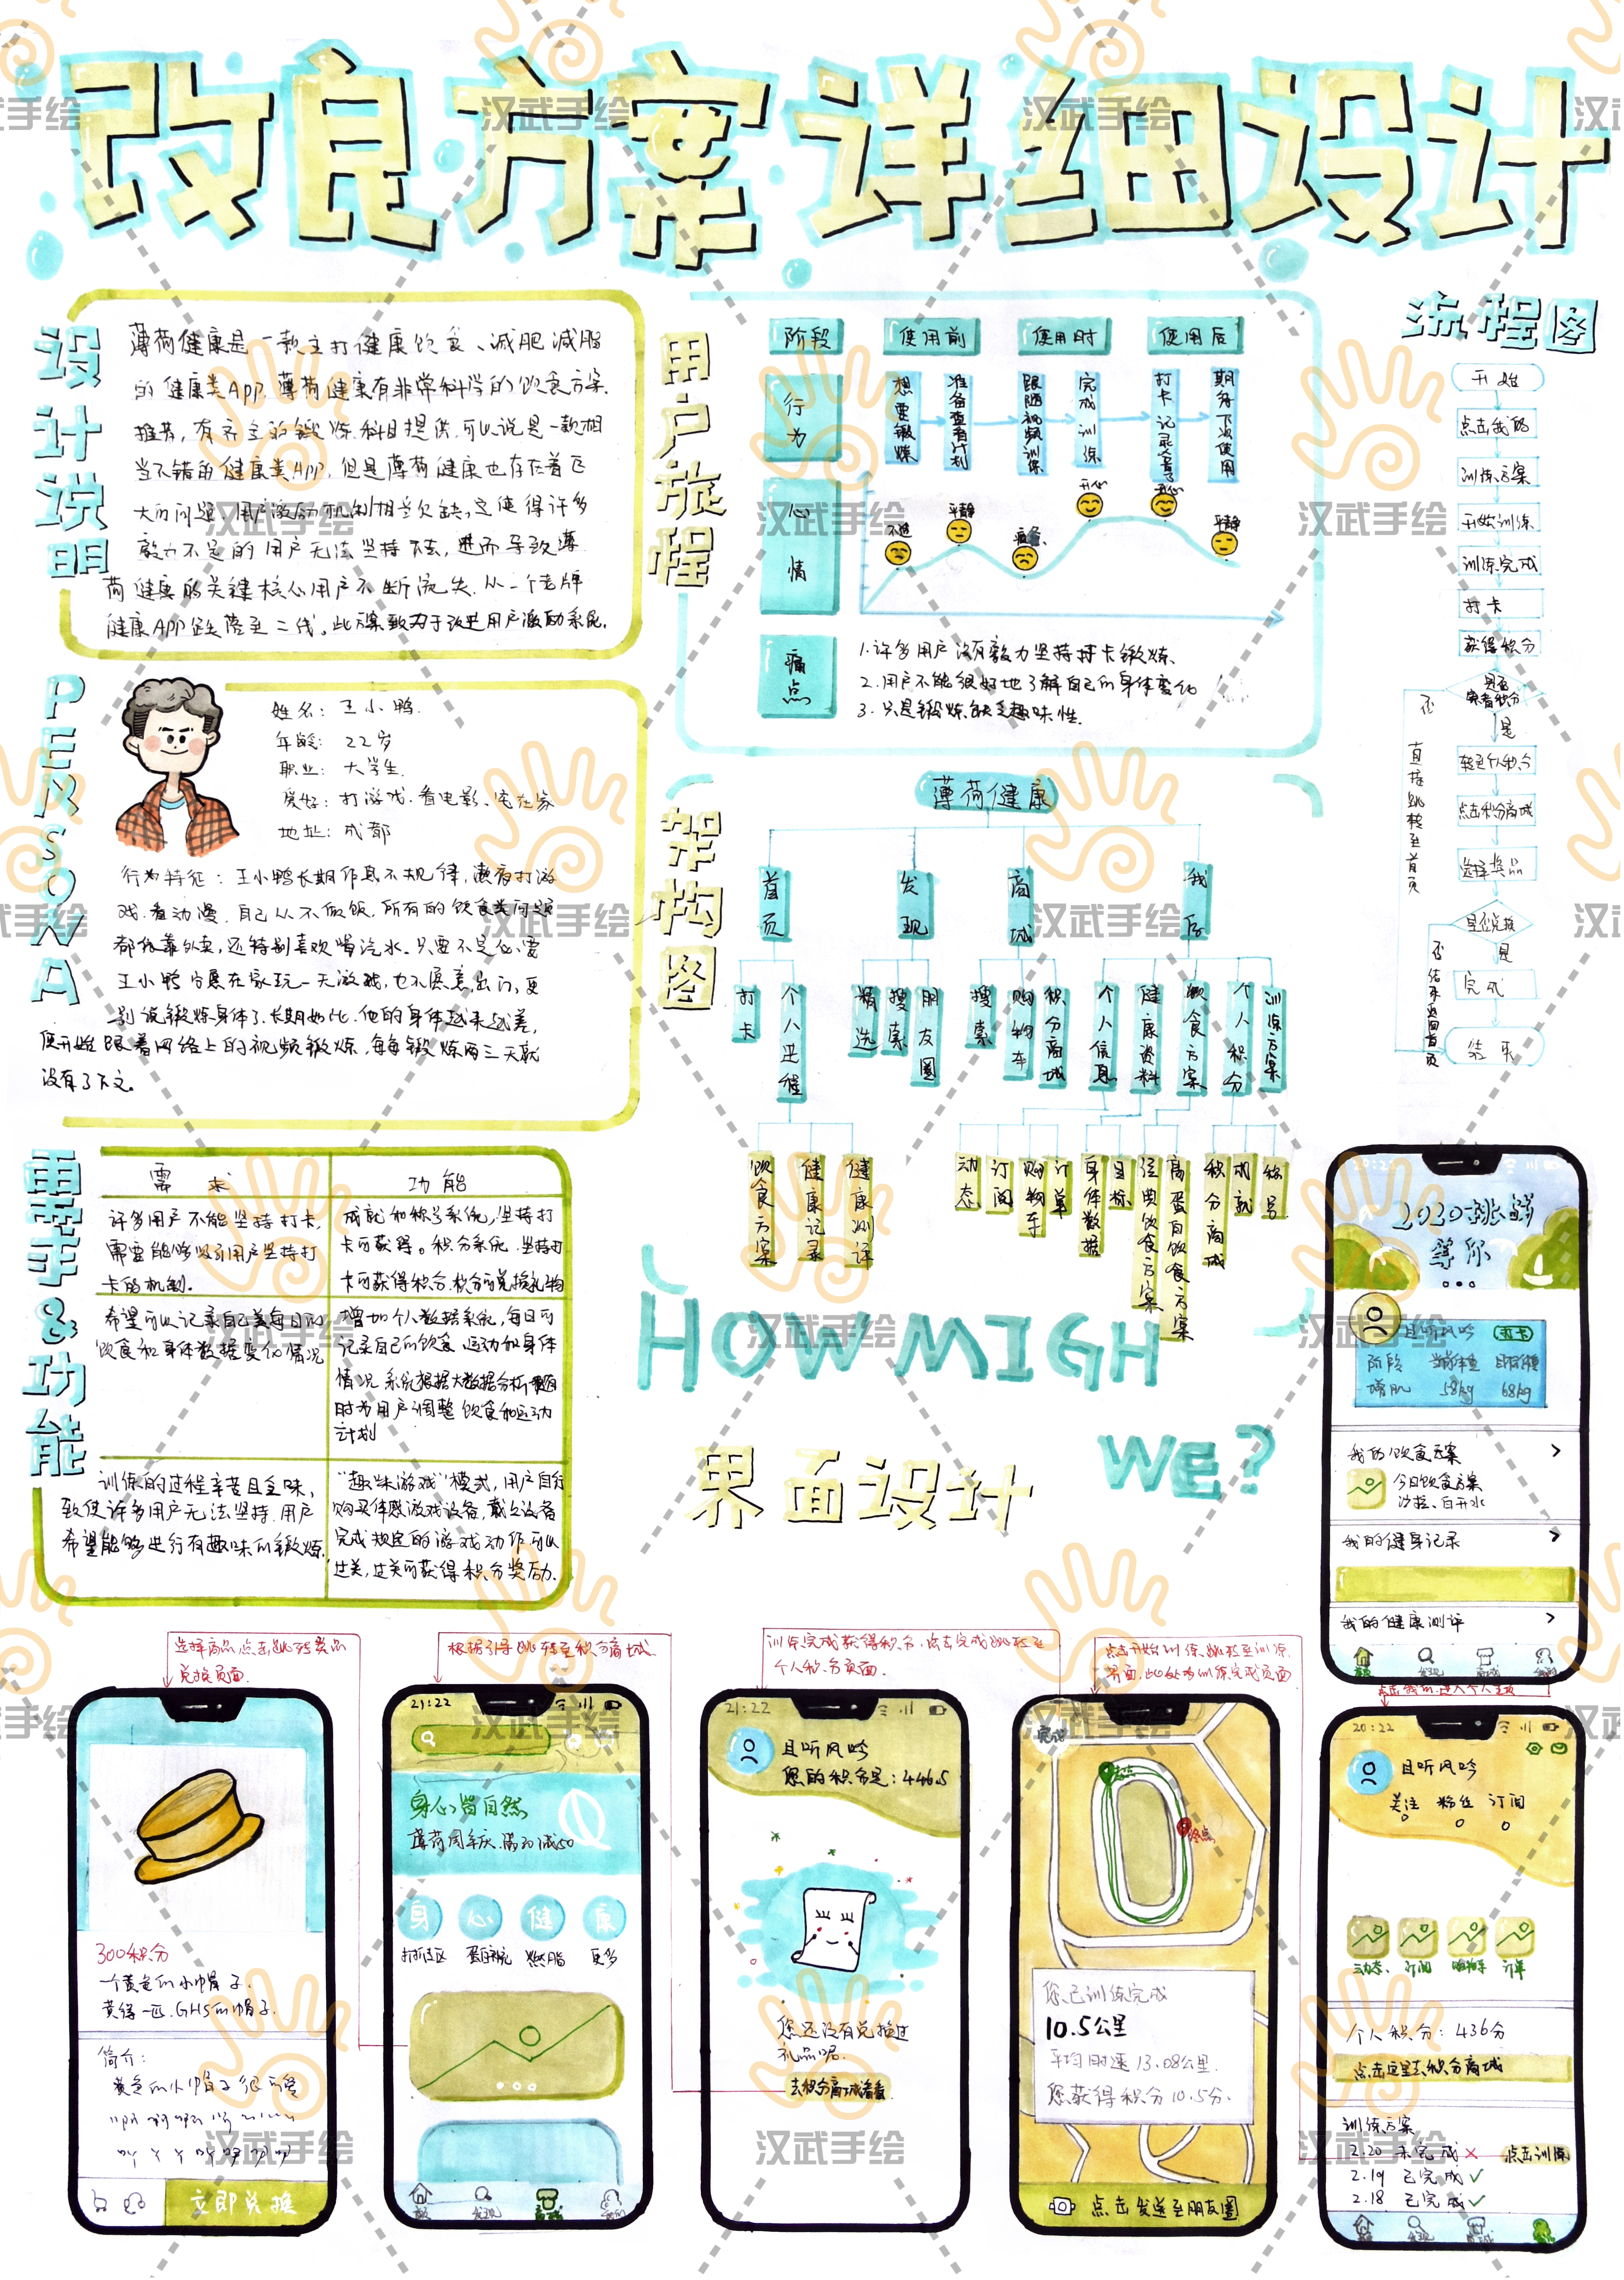 改良方案详细设计
设计说明
薄荷健康是一款主打健康饮食、减肥减脂
的健康类App.薄荷健康有非常科学的饮食方案
推荐,有齐全的锻炼科目提供.可以说是一款相
当不错的健康类App.但是薄荷健康也存在着巨
大的问题.用户激励机制相当欠缺,这使得许多
毅力不足的用户无法坚持下去,进而导致薄
荷健康的关键核心用户不断流失.从一个老牌
健康APP跌落至二线.此方案致力于改进用户激励系统.
PERSONA
姓名:王小鸭.
年龄:22岁
职业:大学生.
爱好:打游戏.看电影、宅在家
地址:成都
行为特征:王小鸭长期作息不规律,熬夜打游
戏.看动漫.自己从不做饭,所有的饮食类问题
都依靠外卖,还特别喜欢喝汽水.只要不是必需
王小鸭宁愿在家玩一天游戏,也不愿意出门,更
别说锻炼身体了.长期如此.他的身体越来越差,
便开始跟着网络上的视频锻炼,每每锻炼两三天就
没有了下文。
需求&功能
需求
功能
许多用户不能坚持打卡,
需要能够吸引用户坚持打
卡的机制.
成就和称号系统,坚持打
卡可获得。积分系统.坚持打
卡可获得积分.积分可兑换礼物
希望可以记录自己每日的
饮食和身体数据变化情况
增加个人数据系统,每日可
记录自己的饮食、运动和身体
情况.系统根据大数据分析
时为用户调整饮食和运动
计划
训练的过程辛苦且乏味,
致使许多用户无法坚持.用户
希望能够进行有趣味的锻炼.
"趣味游戏"模式,用户自行
购买体感游戏设备,戴上设备
完成规定的游戏动作可以
过关,过关可获得积分奖励.
用户旅程
阶段
使用前
使用时
使用后
行为
想要锻炼
准备查看计划
跟随视频训练
完成训练
打卡记录
期待下次使用
心情
不适
平静
疲惫
开心
开心
平静
痛点
1.许多用户没有毅力坚持打卡锻炼、
2.用户不能很好地了解自己的身体变化
3.只是锻炼缺乏趣味性.
架构图
薄荷健康
首页
发现
商城
我的
打卡
个人进程
精选
搜索
朋友圈
搜索
购物车
积分商城
个人信息
健康资料
饮食方案
个人积分
训练方案
饮食方案
健康记录
健康测评
动态
订阅
购物车
订单
身体数据
目标
经典饮食方案
高蛋白饮食方案
积分商城
成就
称号
流程图
开始
点击我的
训练方案
开始训练
训练完成
打卡
获得积分
是否
查看积分
否
是
直接跳转至首页
转至个人积分
点击积分商城
选择奖品
是否兑换
否
是
结束返回首页
完成
结束
HOW MIGH
WE?
界面设计
2020挑战
等你
且听风吟
打卡
阶段 当前体重 目标体重
增肌 58kg 68kg
我的饮食方案
今日饮食方案
沙拉、白开水
我的健身记录
我的健康测评
首页 发现 商城 我的
选择商品点击,跳转奖品
兑换页面.
300积分
一个黄色的小帽子.
黄得一匹.GHS的帽子.
简介:
黄色的小帽子很可爱
立即兑换
根据引导跳转至积分商城.
21:22
身心皆自然
薄荷周年庆.满
身 心 健 康
打折区 蛋白补充 燃脂 更多
首页 发现 商城 我的
训练完成获得积分.点击完成跳转至
个人积分页面.
21:22
且听风吟
您的积分是:446.5
您还没有兑换过
礼品呢.
去积分商城看看.
点击开始训练跳转至训练
界面,此处为训练完成页面
完成
起点
终点
您已训练完成
10.5公里
平均时速13.08公里.
您获得积分10.5分.
点击发送至朋友圈
点击我的.进入个人主页
20:22
且听风吟
关注 粉丝 订阅
0 0 0
动态 订阅 购物车 订单
个人积分:436分
点击这里去积分商城
训练方案
2.20 未完成 × 点击训练
2.19 已完成 ✓
2.18 已完成 ✓
汉武手绘